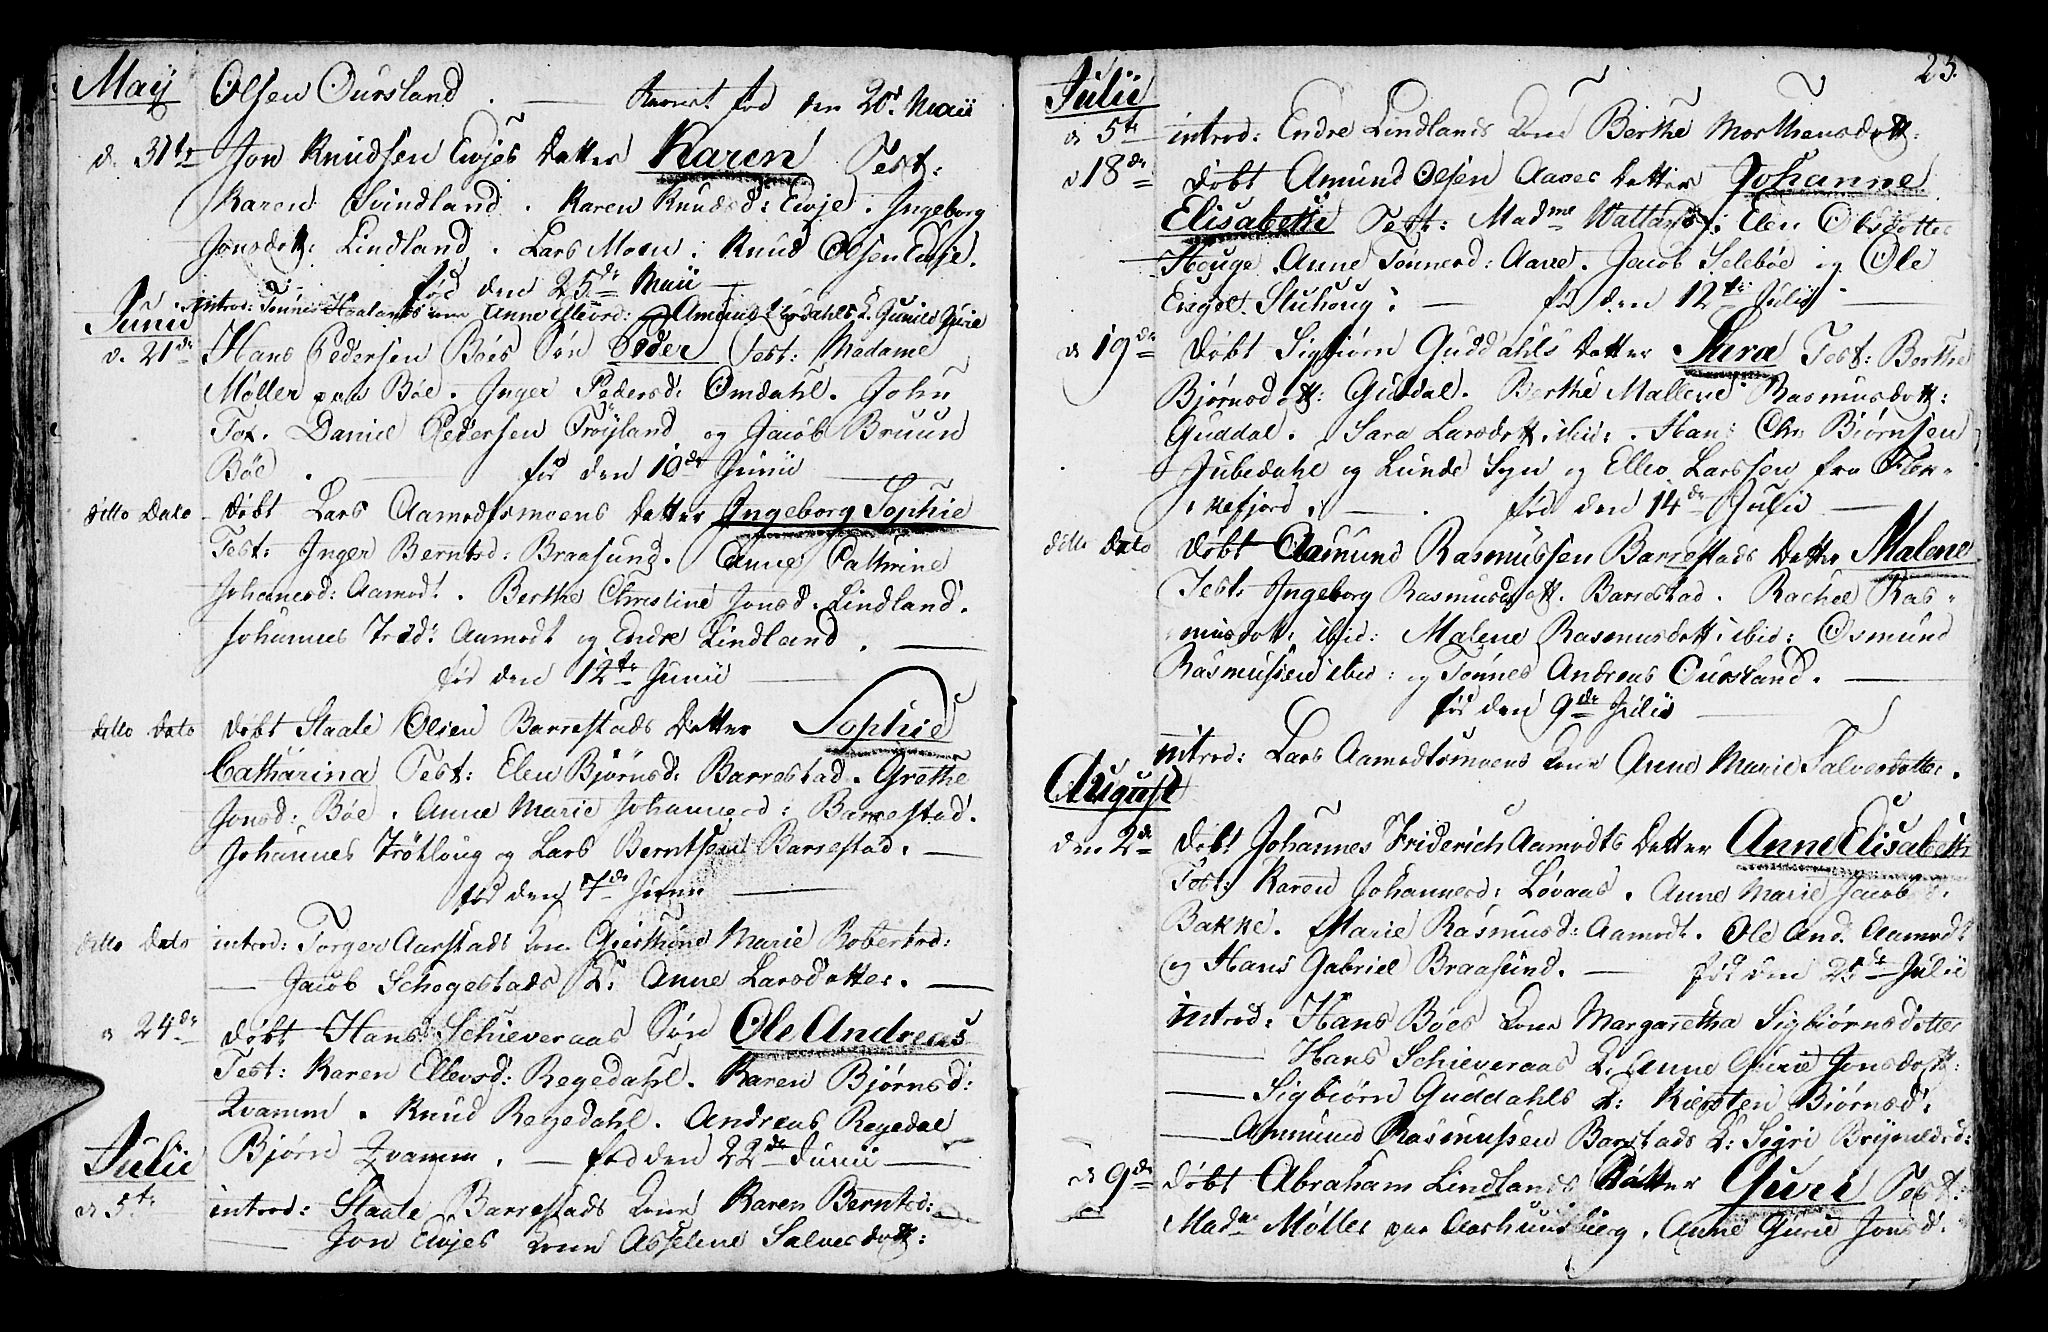 Maij Olsen Oursland. — Barnet fød den 20d Maii
d. 31te Jon Knudsen Evjes Datter Karen Test:
Karen Svindland. Karen Knudsd: Evje. Ingeborg
Jonsdatt: Lindland. Lars Moen. Knud Olsen Evje.
fød den 25de Maii —
introd: Tønnes Haalands Anne
Junii
d. 21de Hans Pedersen Böes Søn Peder Test: Madame
Møller paa Böe. Inger Pedersd: Omdahl. John
Fox. Daniel Pedersen Frøyland og Jacob Bruun
Böe. — fød den 10de Junii —
ditto Dato Døbt Lars Aamodtsmoens Datter Ingeborg Sophie
Test: Inger Berntsd: Braasund. Anne Cathrine
Johanesd: Aamodt. Berthe Christine Jonsd. Lindland.
Johannes Fred: Aamodt og Endre Lindland. —
fød den 12te Junii —
ditto Dato Døbt Staale Olsen Barrestads Datter Sophie
Catharina Test: Elen Bjørnsd: Barrestad. Grethe
Jonsd: Böe. Anne Marie Johannesd: Barrestad.
Johannes Trötloug og Lars Berntsen Barrestad. —
fød den 7de Junii —
ditto Dato introd: Torger Aarstads Kone Marie Robertsd:
— Jacob Schogestads K: Anne Larsdatter. —
d 24de døbt Hans Schieveraas Søn Ole Andreas
Test: Karen Ellevsd: Regedahl. Karen Bjørnsd:
Qvamm. Knud Regedahl. Andreas Regedal
Bjørn Qvamm. — fød den 22de Junii —
Julii
d 5te introd: Staale Barrestads Kone Karen Berntsd:
— Jon Evjes Kone Asselene Salvesdatt:
23.
Julii
d 5te introd: Endre Lindlands Kone Berthe Morthensdatt:
d 18de døbt Amund Olsen Aaves Datter Johanne
Elisabeth Test: Madme Wattans: Elen Olsdatter
Houge. Anne Tønnesd: Aave. Jacob Selebøe og Ole
Engel. Stuhoug: — fød den 12te Julii —
d 19de Døbt Sigbiørn Guddahls Datter Sara Test: Berthe
Bjørnsdatt: Guddal. Berthe Mallene Rasmusdatt:
Guddal. Sara Larsdatt: ibid:. Han: Chr. Biørnsen
Jubedahl og Lunde Sogn og Ellev Larssen fra Flek-
kefjord. — fød den 14de Julii —
ditto Dato Døbt Aasmund Rasmussen Barrestads Datter Malene
Test: Ingeborg Rasmusdatt. Barrestad. Rachel Ras-
musdatt: ibid: Malene Rasmusdatt: ibid: Osmund
Rasmussen ibid: og Tønnes Andreas Oursland. —
fød den 9de Julii —
introd: Lars Aamodtsmoens Kone Anne Marie Salvesdatter.
August
den 2de Døbt Johannes Friderich Aamodts Datter Anne Elisabeth
Test: Karen Johannesd: Løvaas. Anne Marie Jacobsd:
Bakke. Marie Rasmusd: Aamodt. Ole And. Aamodt
og Hans Gabriel Braasund. — fød den 25de Julii
introd: Hans Böes Kone Margaretha Sigbiørnsdatter
— Hans Schieveraas K: Anne Gurie Jonsdatt:
— Sigbiørn Guddahls K: Kiersten Biørnsd:
— Aamund Rasmussen Barstads K: Sigri Brynildsd:
d 9de døbt Abraham Lindlands Datter Guri Test:
Made Møller paa Aashundbierg. Anne Gurie Jonsd: